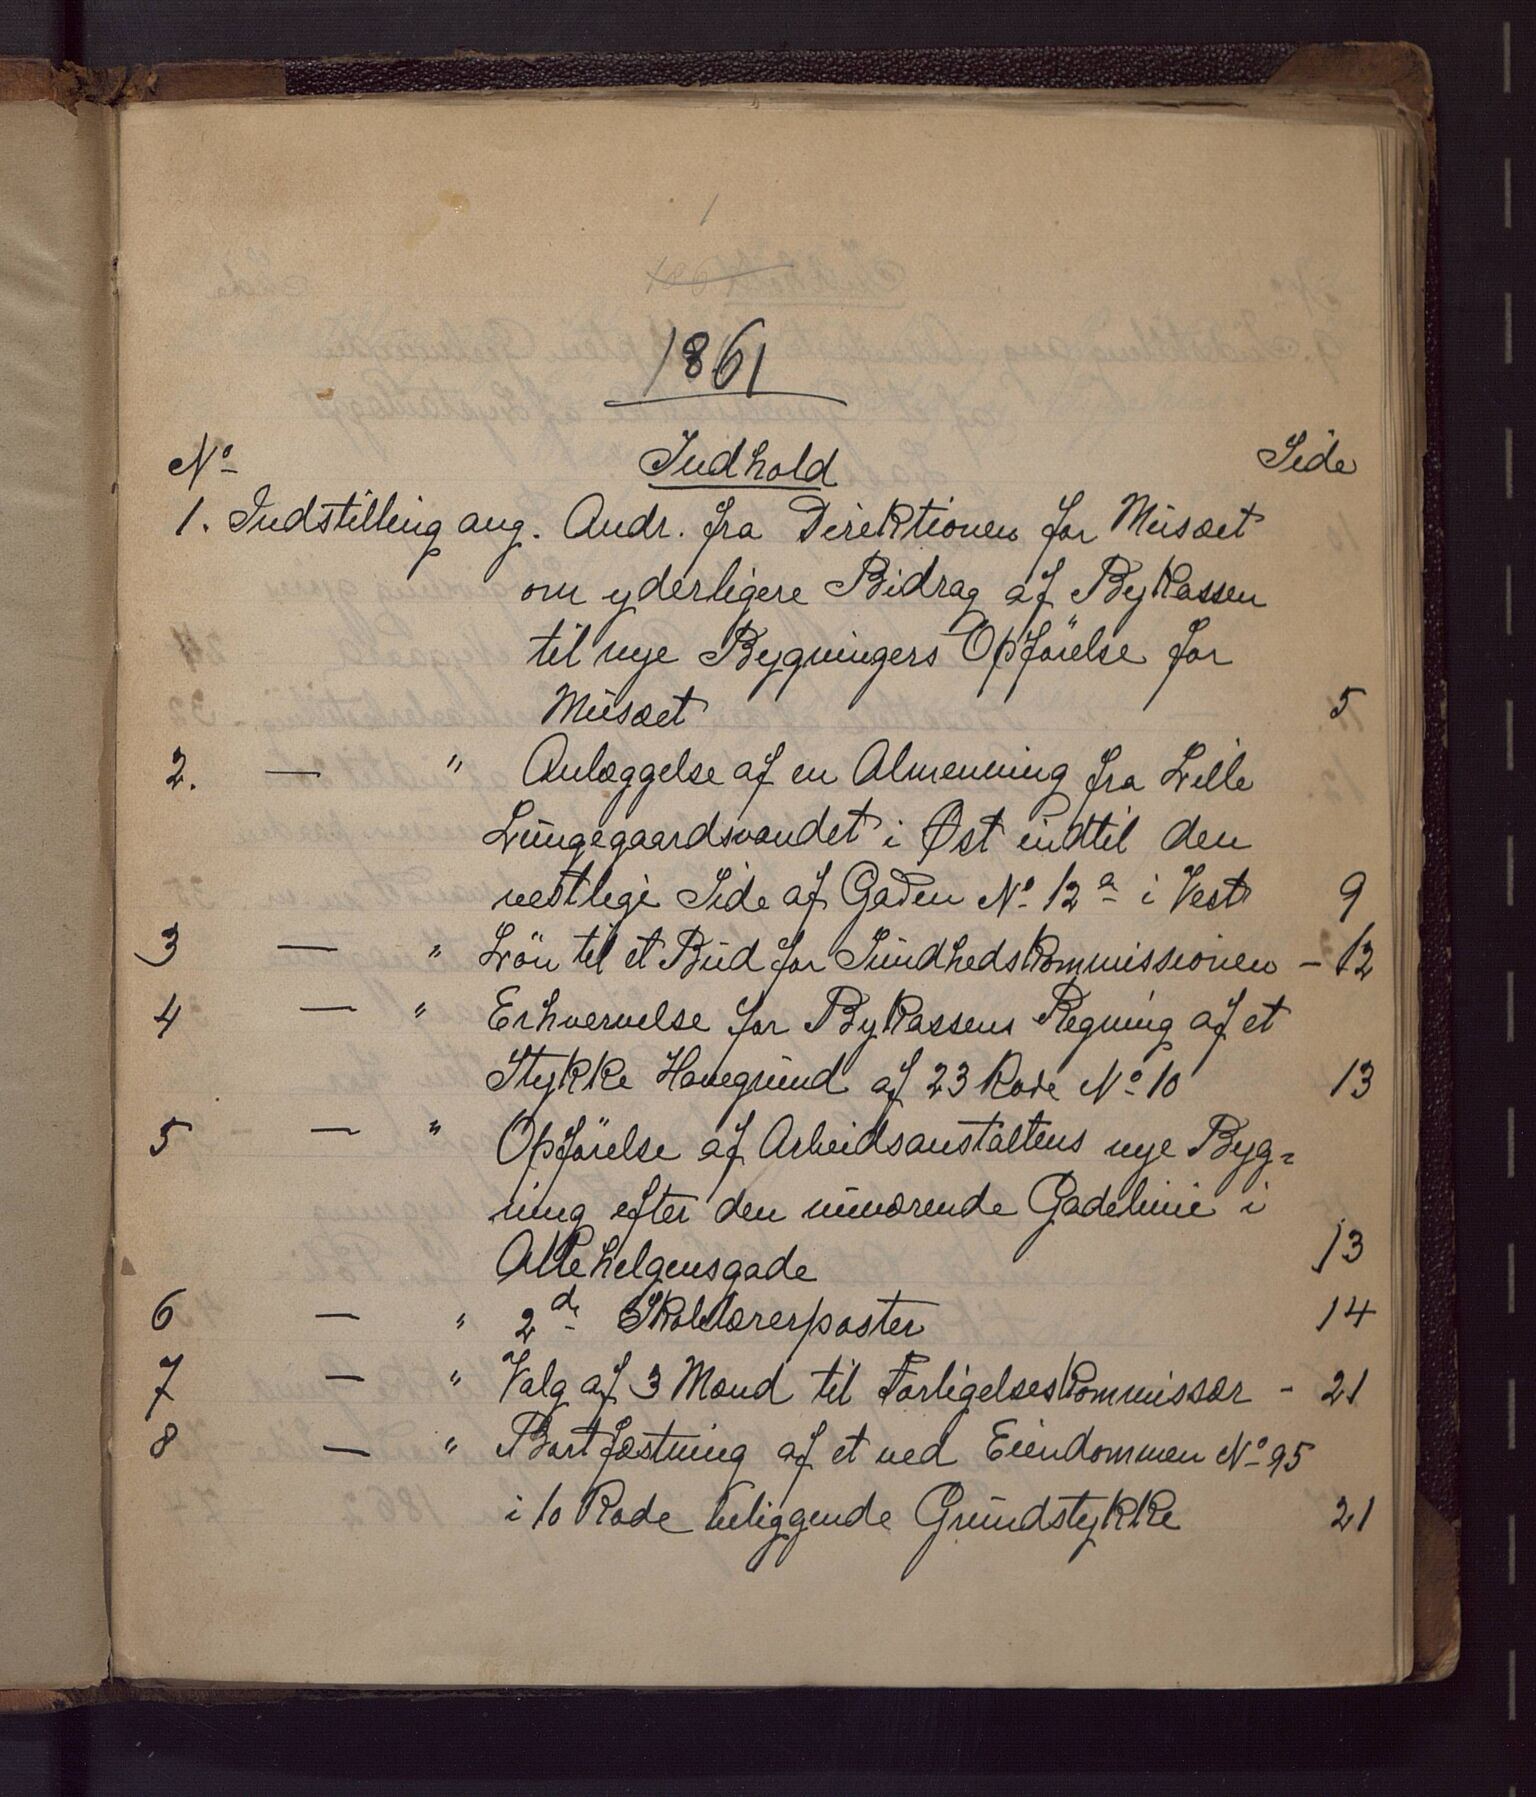 1861
No Indhold Side
1. Indstilling ang. Andr. fra Direktionen for Musæet
om yderligere Bidrag af Bykassen
til nye Bygningers Opförelse for
Musæet 5
2. — " Anlæggelse af en Almenning fra Lille
Lungegaardsvandet i Øst indtil den
vestlige Side af Gaden No 12a i Vest 9
3 — " Lön til et Bud for Sundhedskommissionen – 12
4 — " Erhvervelse for Bykassens Regning af et
Stykke Havegrund af 23 Rode No 10 13
5 — " Opförelse af Arbeidsanstaltens nye Byg=
ning efter den nuværende Gadelinie i
Allehelgensgade 13
6 — " 2de Skolelærerposter 14
7 — " Valg af 3 Mænd til Forligelseskommissær – 21
8 — " Bortfæstning af et ved Eiendommen No 95
i 10 Rode beliggende Grundstykke 21